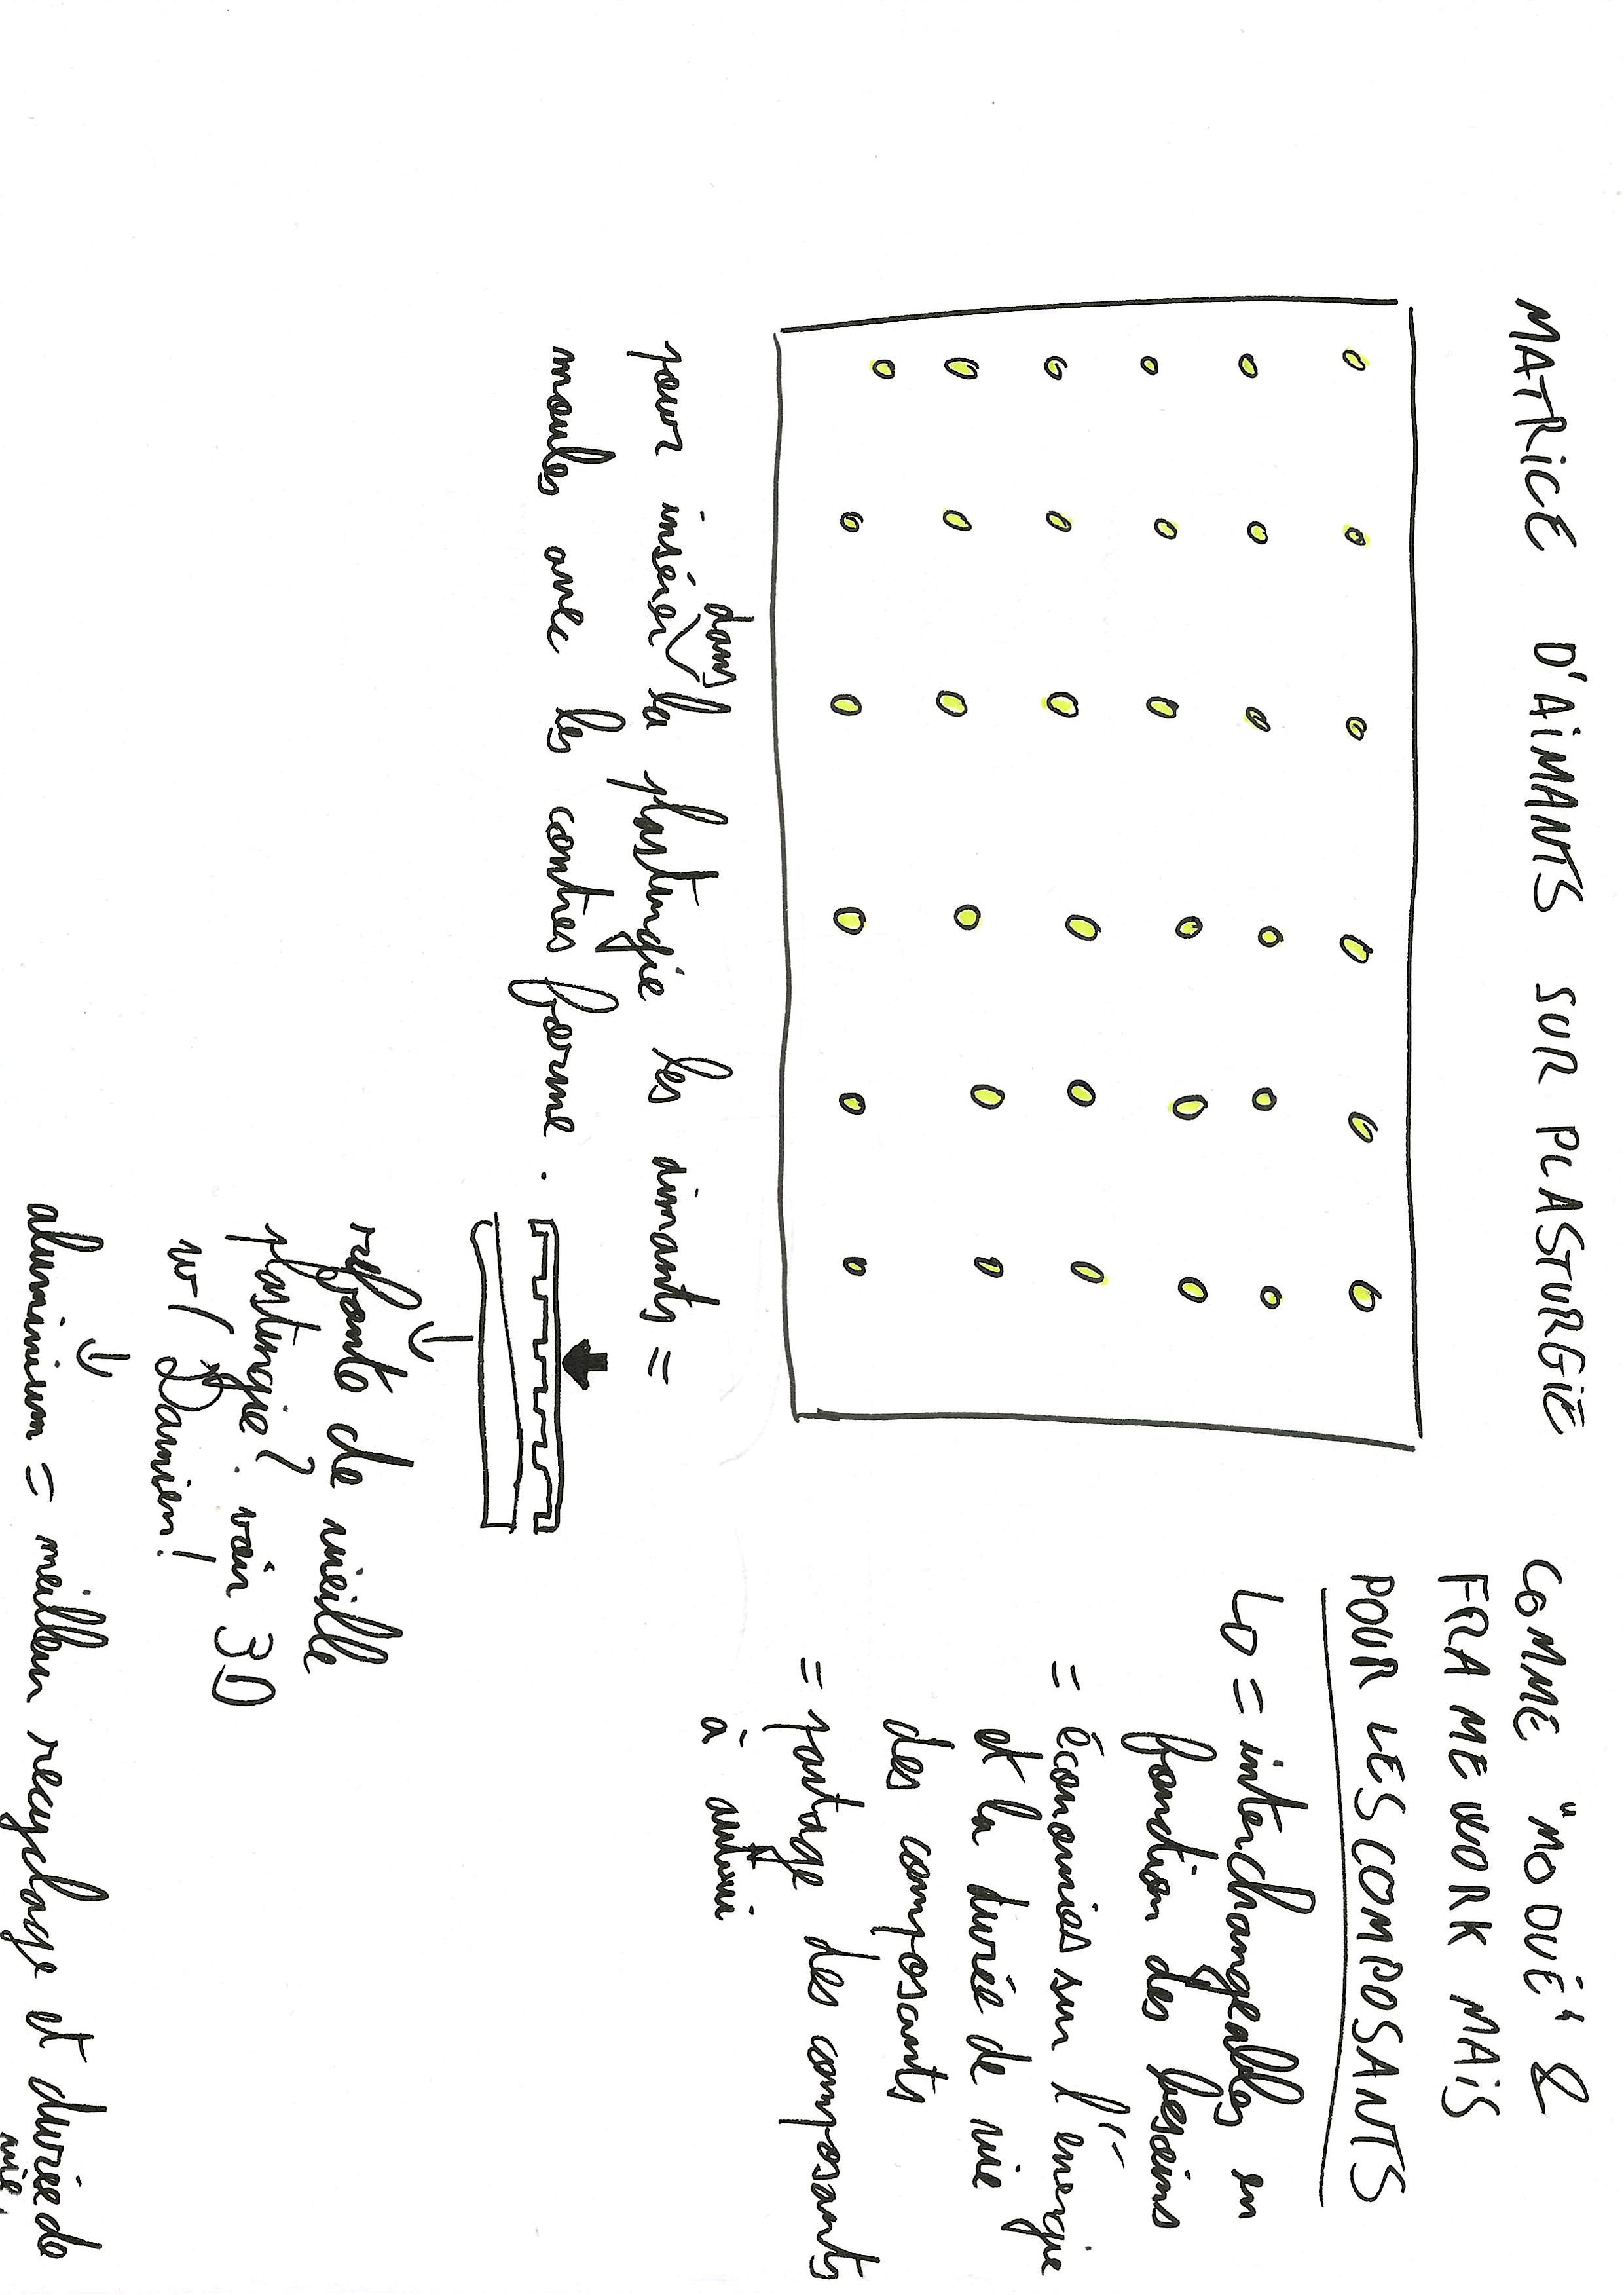 MATRICE D'AIMANTS SUR PLASTURGIE
pour insérer dans la plasturgie les aimants =
moules avec les contres forme.
refonte de vieille
plasturgie? voir 3D
w/ Damien!
aluminium = meilleur recyclage et durée de
vie.
COMME "MODUÉ" &
FRAMEWORK MAIS
POUR LES COMPOSANTS
↳ = interchangeables en
fonction des besoins
= économies sur l'énergie
et la durée de vie
des composants
= partage des composants
à autrui